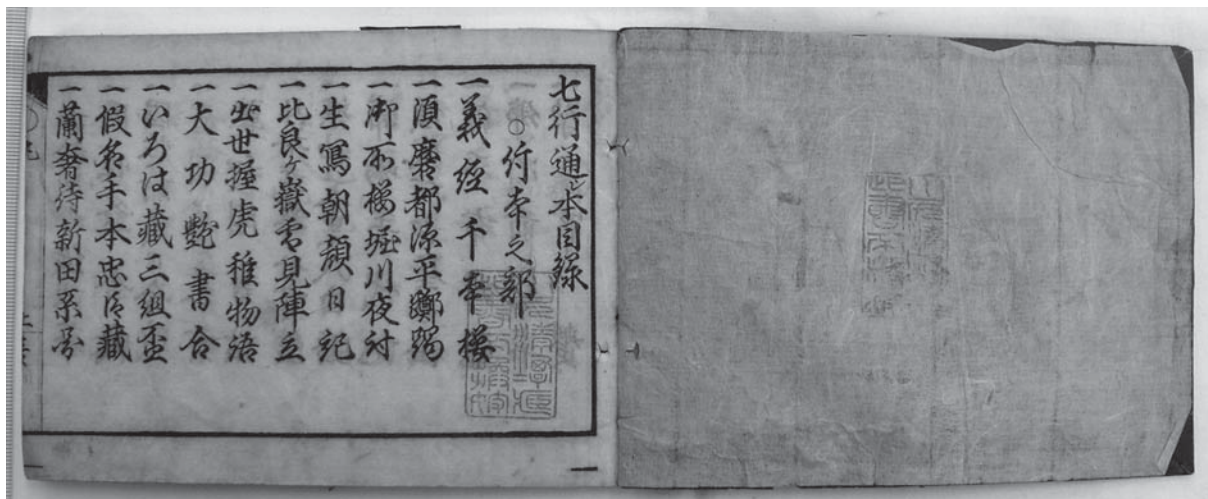 七行通シ本目録
○付本之部
一義経千本桜
一須磨都源平躑躅
一御所桜堀川夜討
一生写朝顔日記
一比良ヶ嶽雪見陣立
一出世握虎稚物語
一大功艶書合
一いろは蔵三組盃
一假名手本忠臣蔵
一蘭奢待新田系図